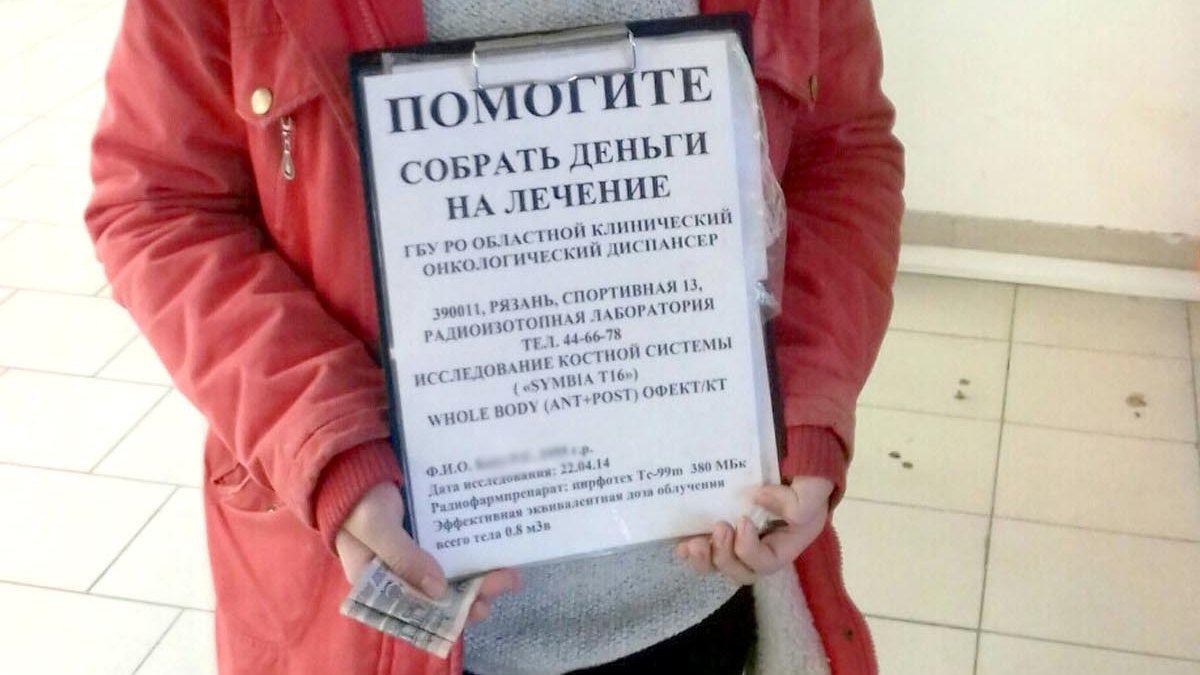 ПОМОГИТЕ
СОБРАТЬ ДЕНЬГИ
НА ЛЕЧЕНИЕ
ГБУ РО ОБЛАСТНОЙ КЛИНИЧЕСКИЙ
ОНКОЛОГИЧЕСКИЙ ДИСПАНСЕР
390011, РЯЗАНЬ, СПОРТИВНАЯ 13,
РАДИОИЗОТОПНАЯ ЛАБОРАТОРИЯ
ТЕЛ. 44-66-78
ИССЛЕДОВАНИЕ КОСТНОЙ СИСТЕМЫ
( «SYMBIA T16»)
WHOLE BODY (ANT+POST) ОФЕКТ/КТ
Ф.И.О. г.р.
Дата исследования: 22.04.14
Радиофармпрепарат: пирфотех Тс-99m 380 МБк
Эффективная эквивалентная доза облучения
всего тела 0.8 мЗв